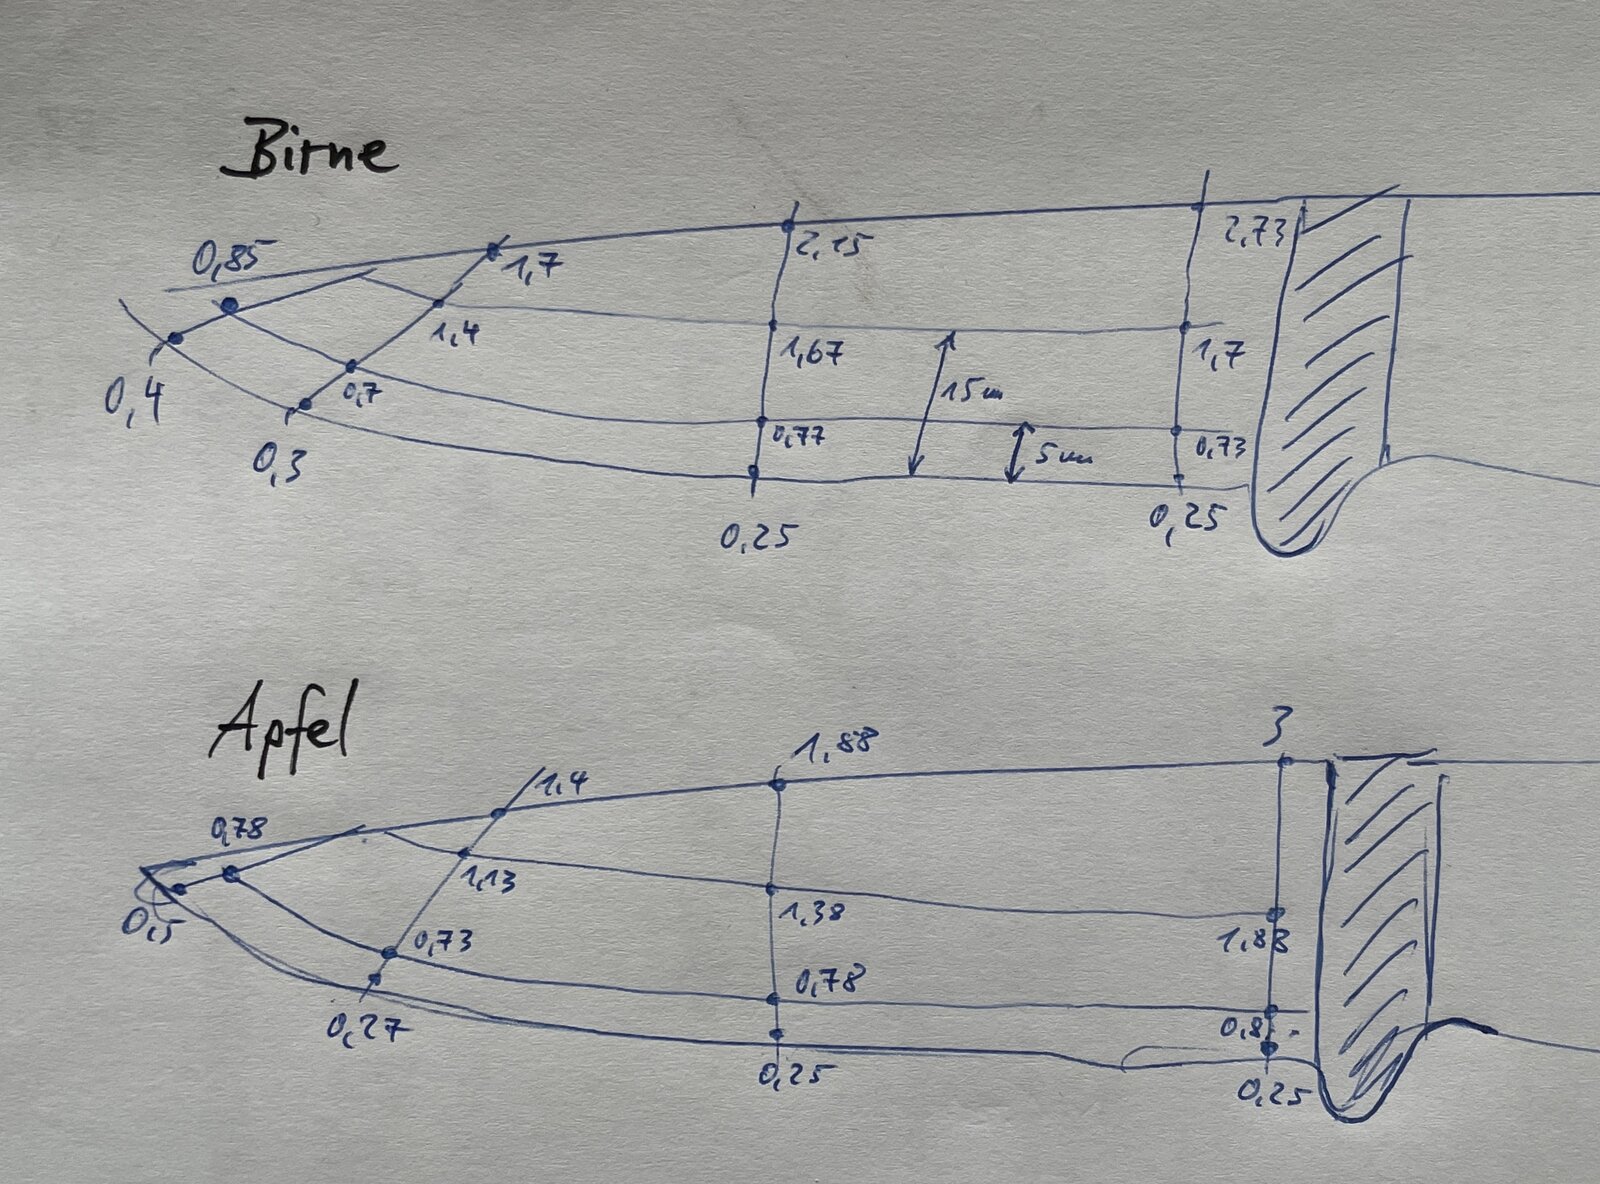 Birne
0,85
1,7
2,15
2,73
1,4
1,67
1,7
0,4
0,7
15mm
0,77
5mm
0,73
0,3
0,25
0,25
Apfel
3
1,88
1,4
0,78
1,13
1,38
0,5
1,88
0,73
0,78
0,27
0,25
0,25